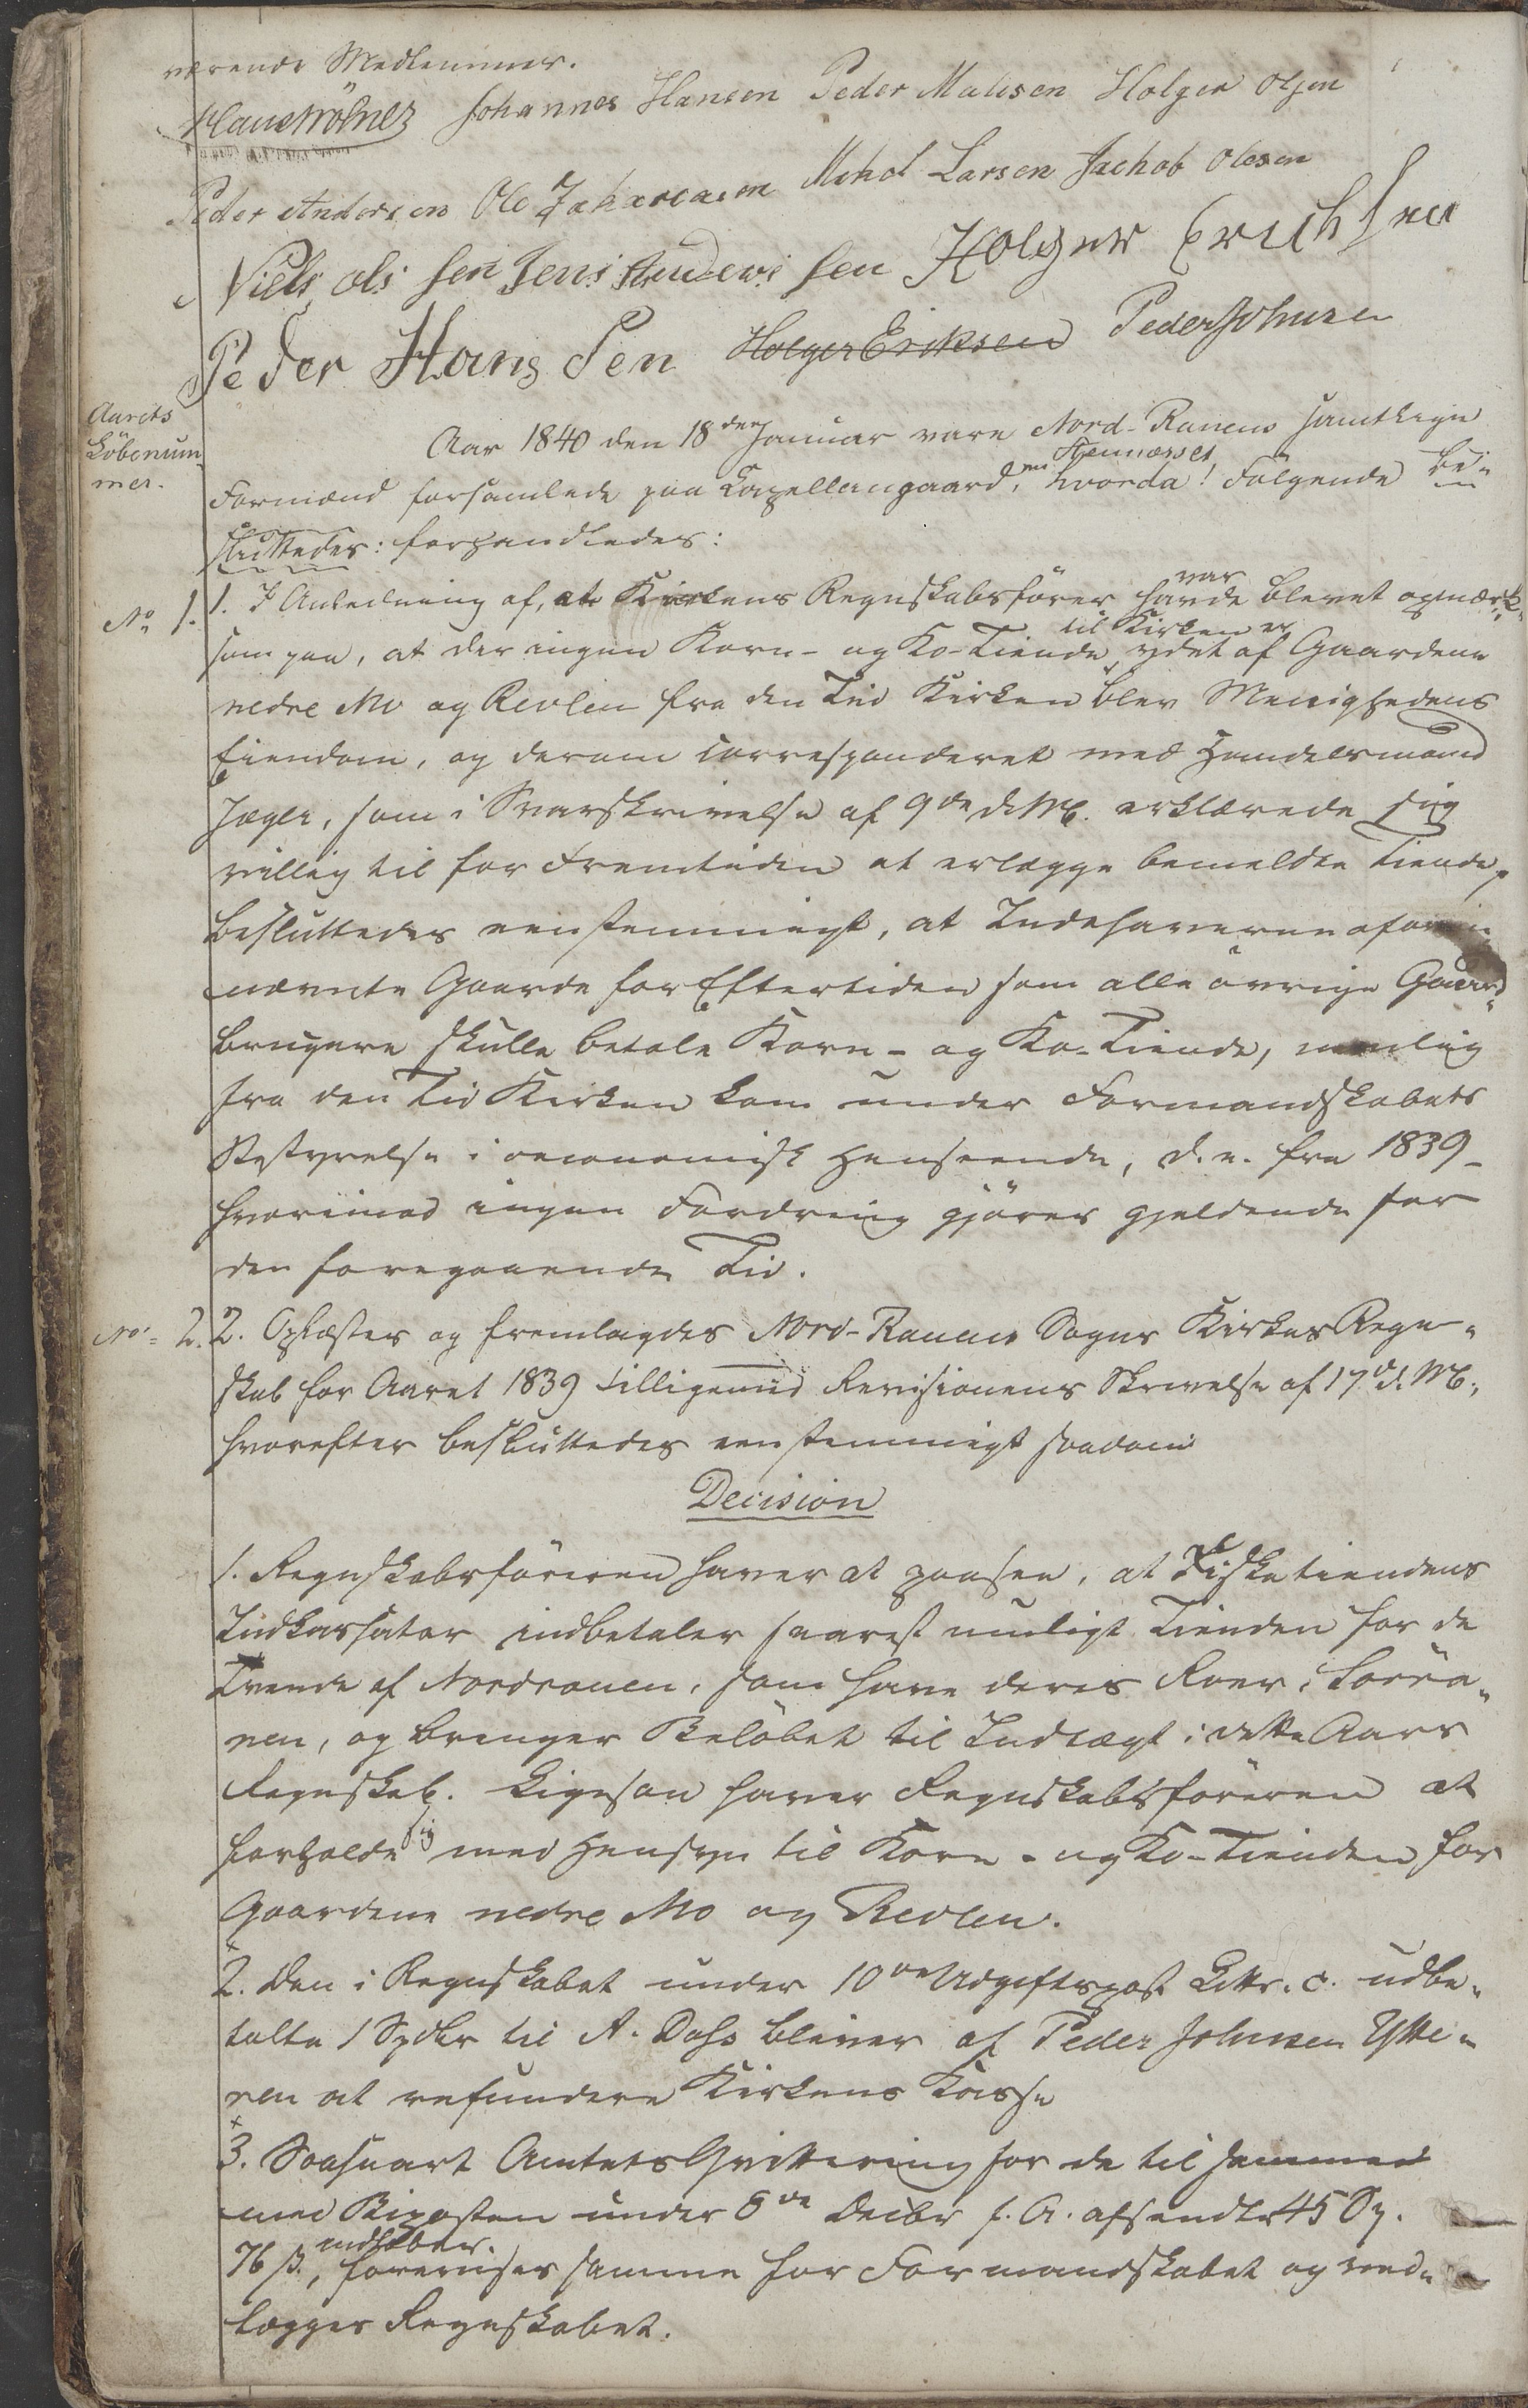 værende Medlemmer.
Johannes Hansen Peder Matisen Holger Olsen
Peder Andersen Ole Zakariasen Mikal Larsen Jachob Olesen
Niels Ols sen Jens Andersen Holger Erichsen
Peder Hans Sen Holger Eriksen Peder Johnsen
Aarets
Löbenum-
mer.
Aar 1840 den 18den Januar vare Nord-Ranens samtlige
Formænd forsamlede paa Capellangaarden Stennæsset, hvorda Følgende be-
sluttedes: forhandledes:
No 1. 1. I Anledning af, at Kirkens Regnskabsfører havde var blevet opmærk-
som paa, at der ingen Korn- og Ko-Tiende til Kirken er ydet af Gaardene
nedre Mo og Revlen fra den Tid Kirken blev Menighedens
Eiendom, og derom correspanderet med Handelsmand
Jæger, som i Svarskrivelse af 9de d. M. erklærede sig
villig til for Fremtiden at erlægge bemeldte Tiende,
besluttedes eenstemmigt, at Indehaveren af oven-
nævnte Gaarde for Eftertiden som alle øvrige Gaard-
brugere skulle betale Korn- og Ko-Tiende, nemlig
fra den Tid Kirken kom under Formandskabets
Bestyrelse i oeconomisk Henseende, d. e. fra 1839 -
hvorimod ingen Fordring gjøres gjeldende for
den foregaaende Tid.
No 2. 2. Oplæstes og fremlagdes Nord-Ranens Sogns Kirkes Regn-
skab for Aaret 1839 tilligemed Revisionens Skrivelse af 17d. d. M.,
hvorefter besluttedes eenstemmigt saadan
Decision
1. Regnskabsføreren haver at paasee, at Fisketiendens
Indkassator indbetaler snarest muligt Tienden for de
Trende af Nordranen, som have deres Roer i Sørra-
nen, og bringer Beløbet til Indtægt i dette Aars
Regnskab. Ligesaa haver Regnskabsføreren at
forholde sig med Hensyn til Korn- og Ko-Tienden for
Gaardene nedre Mo og Revlen.
2. Den i Regnskabet under 10de Udgiftspost Littr. c. udbe-
talte 1 Spdlr til A. Dass bliver af Peder Johnsen Ytte-
ren at refundere Kirkens Kasse
3. Saasnart Amtets Qvittering for de til samme
med Biposten under 8de Decbr f. A. afsendte 45 Sp.
76 ß. indløber, forevises samme for Formandskabet og ved-
lægges Regnskabet.